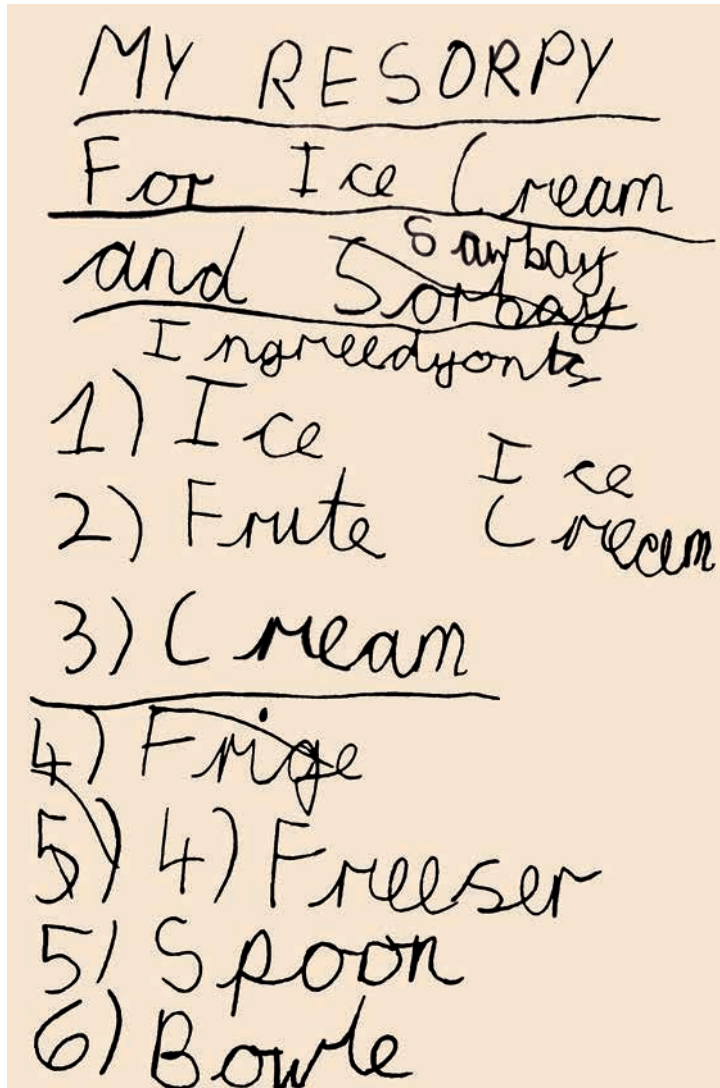 MY RESORPY
For Ice Cream
Sawbay
and Sorbay
Ingreedyonts
1) Ice
2) Frute
Ice
Cream
3) Cream
4) Frige
5) 4) Freeser
5) Spoon
6) Bowle